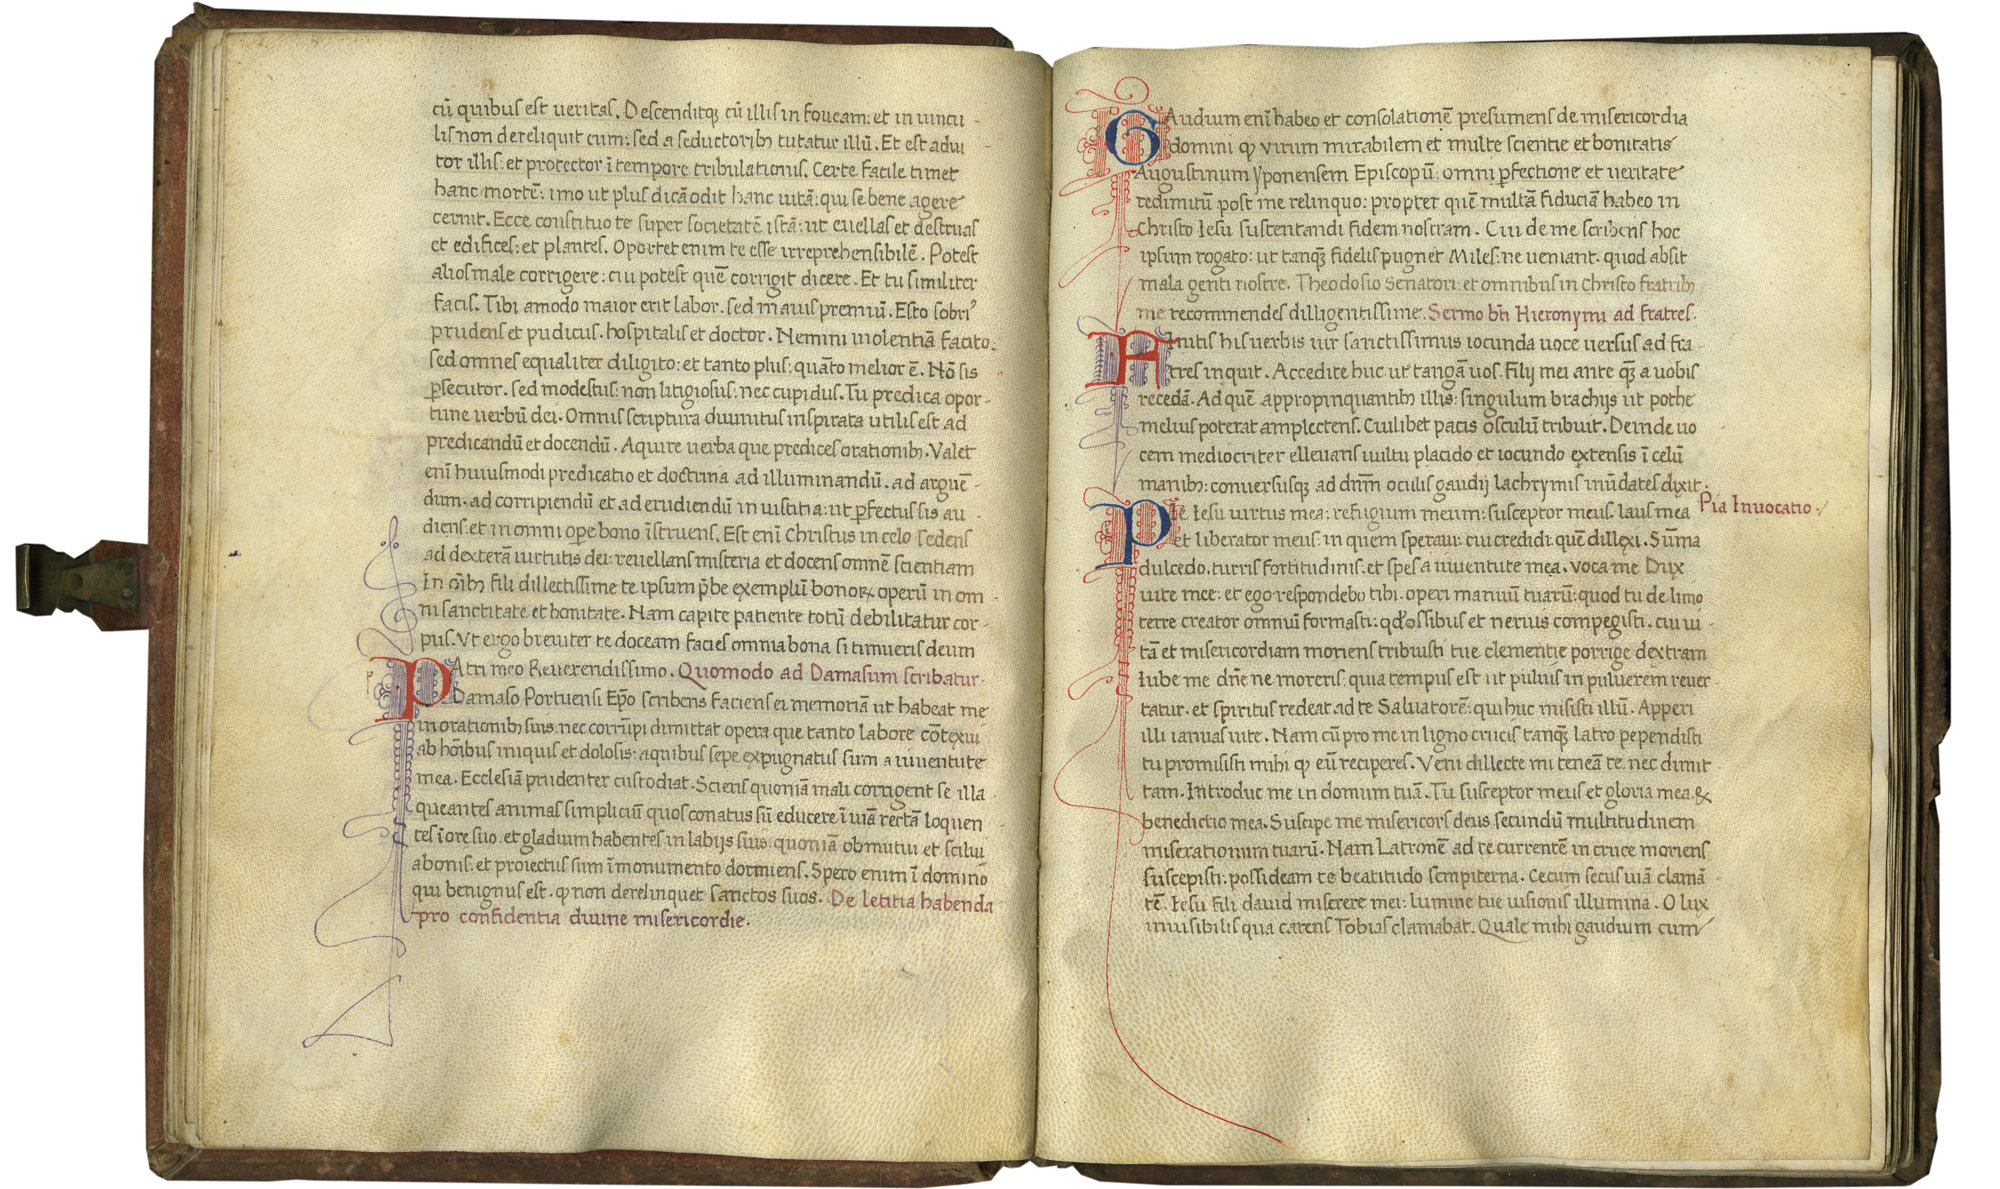 cū quibus est ueritas. Descenditqȝ cū illis in foueam: et in uincu-
lis non dereliquit eum: sed a seductoribȝ tutatur illū. Et est adiu-
tor illis: et protector ī tempore tribulationis. Certe facile timet
hanc mortē: imo ut plus dicā odit hanc uitā: qui se bene agere
cernit. Ecce constituo te super societatē istā: ut euellas et destruas
et edifices: et plantes. Oportet enim te esse irreprehensibilē. Potest
alios male corrigere: cui potest quē corrigit dicere. Et tu similiter
facis. Tibi amodo maior erit labor. sed mauis premiū. Esto sobriꝰ
prudens et pudicus. hospitalis et doctor. Nemini uiolentiā facito.
sed omnes equaliter diligito: et tanto plus: quāto melior ē. Nō sis
ꝑsecutor. sed modestus: non litigiosus: nec cupidus. Tu predica opor-
tune uerbū dei. Omnis scriptura diuinitus inspirata utilis est ad
predicandū et docendū. Aquire uerba que predices orationibȝ. Valet
eni̅ huiusmodi predicatio et doctrina ad illuminandū. ad arguē-
dum. ad corripiendū et ad erudiendū in iustitia: ut ꝑfectus sis au-
diens. et in omni oꝑe bono īstruens. Est eni̅ Christus in celo sedens
ad dexterā uirtutis dei: reuellans misteria et docens omnē scientiam
In oi̅bȝ fili dillectissime te ipsum p̄be exemplū bonoꝝ operū in om-
ni sanctitate et bonitate. Nam capite patiente totū debilitatur cor-
pus. Vt ergo breuiter te doceam facies omnia bona si timueris deum
PAtri meo Reuerendissimo. Quomodo ad Damasum scribatur.
Damaso Portuensi Ep̄o scribens faciens ei memoriā ut habeat me
in orationibȝ suis. nec corrūpi dimittat opera que tanto labore cōtexui
ab hōibus iniquis et dolosis: a quibus sepe expugnatus sum a iuuentute
mea. Ecclesiā prudenter custodiat. Sciens quoniā mali corrigent se illa-
queantes animas simpliciū quos conatus sū educere ī uiā rectā loquen-
tes ī ore suo. et gladium habentes in labijs suis: quoniā obmutui et silui
a bonis: et proiectus sum ī monumento dormiens. Spero enim ī domino
qui benignus est. ꝙ non derelinquet sanctos suos. De letitia habenda
pro confidentia diuine misericordie.
GAudium eni̅ habeo et consolationē presumens de misericordia
domini ꝙ virum mirabilem et multe scientie et bonitatis
Augustinum yponensem Episcopū: omni ꝑfectione et ueritate
redimitū post me relinquo: propter quē multā fiduciā habeo in
Christo Iesu sustentandi fidem nostram. Cui de me scribens hoc
ipsum rogato: ut tanqȝ fidelis pugnet Miles: ne ueniant. quod absit
mala genti nostre. Theodosio Senatori: et omnibus in christo fratribȝ
me recommendes dilligentissime. Sermo bti̅ Hieronymi ad fratres.
FInitis his uerbis uir sanctissimus iocunda uoce uersus ad fra-
tres inquit. Accedite huc ut tangā uos. Filij mei ante qȝ a uobis
recedā. Ad quē appropinquantibȝ illis: singulum brachijs ut pothe
melius poterat amplectens. Cuilibet pacis osculū tribuit. Deinde uo
cem mediocriter elleuans uultu placido et iocundo extensis ī celū
manibȝ: conuersusqȝ ad dnm̄ oculis gaudij lachrymis inūdates dixit.
Pia Inuocatio.
PIe Iesu uirtus mea: refugium meum: susceptor meus. laus mea
et liberator meus. in quem speraui: cui credidi: quē dillexi. Sūma
dulcedo. turris fortitudinis. et spes a iuuentute mea. voca me Dux
uite mee: et ego respondebo tibi. operi manuū tuarū: quod tu de limo
terre creator omniū formasti: qd̄ ossibus et neruis compegisti. cui ui-
tā et misericordiam moriens tribuisti tue clementie porrige dextram
Iube me dn̄e ne moreris. quia tempus est ut puluis in puluerem reuer-
tatur. et spiritus redeat ad te Saluatorē: qui huc misisti illū. Apperi
illi ianuas uite. Nam cū pro me in ligno crucis tanqȝ latro pependisti
tu promisisti mihi ꝙ eū reciperes. Veni dillecte mi teneā te. nec dimit-
tam. Introduc me in domum tuā. Tu susceptor meus et gloria mea. &
benedictio mea. Suscipe me misericors deus secundū multitudinem
miserationum tuarū. Nam Latronē ad te currentē in cruce moriens
suscepisti: possideam te beatitudo sempiterna. Cecum secus uiā clamā-
tē. Iesu fili dauid miserere mei: lumine tue uisionis illumina. O lux
inuisibilis qua carens Tobias clamabat. Quale mihi gaudium cum